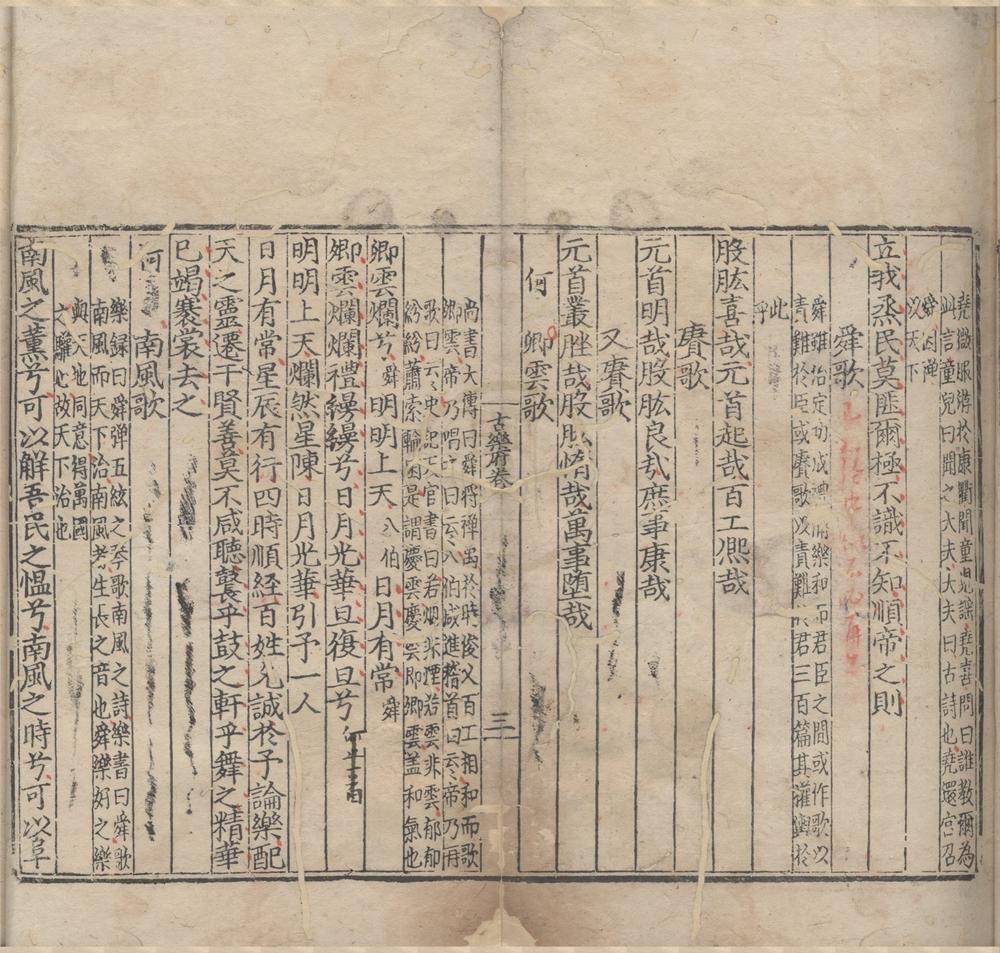 堯微服游於康衢聞童兒謠堯喜問曰誰教爾為
此言童兒曰聞之大夫大夫曰古詩也堯還宮召
舜因禅
以天下
立我烝民莫匪爾極不識不知順帝之則
舜歌
舜雖治定功成禮備樂和而君臣之間或作歌以
責難於臣或賡歌以責難於君三百篇其權輿於
此
乎
股肱喜哉元首起哉百工熈哉
賡歌
元首明哉股肱良哉庶事康哉
又賡歌
元首叢脞哉股肱惰哉萬事堕哉
何 卿雲歌
古樂府卷
三
尚書大傳曰舜将禅禹於時俊乂百工相和而歌
卿雲帝乃唱之曰云云八伯咸進稽首曰云云帝乃再
歌曰云云史記天官書曰若烟非煙若雲非雲郁郁
紛紛蕭索輪囷是謂慶雲慶雲即卿雲盖和氣也
卿雲爛兮舜明明上天八伯日月有常舜
卿雲爛爛禮縵縵兮日月光華旦復旦兮
明明上天爛然星陳日月光華引予一人
日月有常星辰有行四時順経百姓允誠於予論樂配
天之靈遷于賢善莫不咸聽鼚乎鼓之軒乎舞之精華
已竭褰裳去之
何 南風歌
樂録曰舜弹五絃之琴歌南風之詩樂書曰舜歌
南風而天下治南風者生長之音也舜樂好之樂
與天地同意得萬國
之驩心故天下治也
南風之薰兮可以解吾民之愠兮南風之時兮可以阜